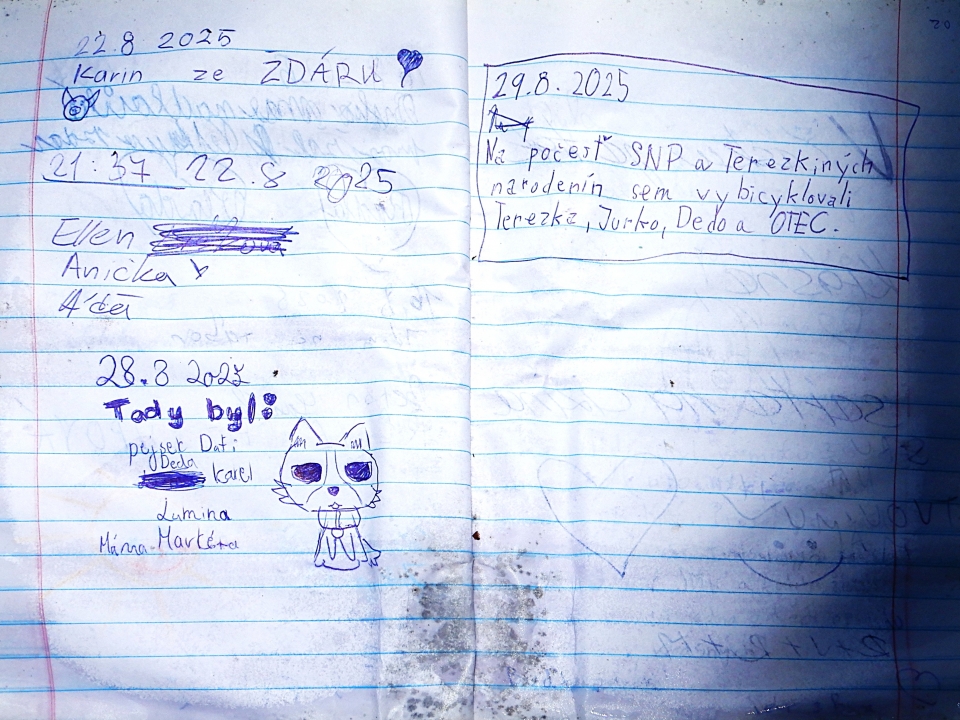 22.8 2025
Karin ze ZĎÁRU
21:37 22.8 2025
Ellen
Anička
28.8 2025
Tady byl:
pejsek Dati
Deda
Karel
Lumina
Máma Markéta
29.8.2025
Na počesť SNP a Terezkiných
narodenín sem vybicyklovali
Terezka, Jurko, Dedo a OTEC.